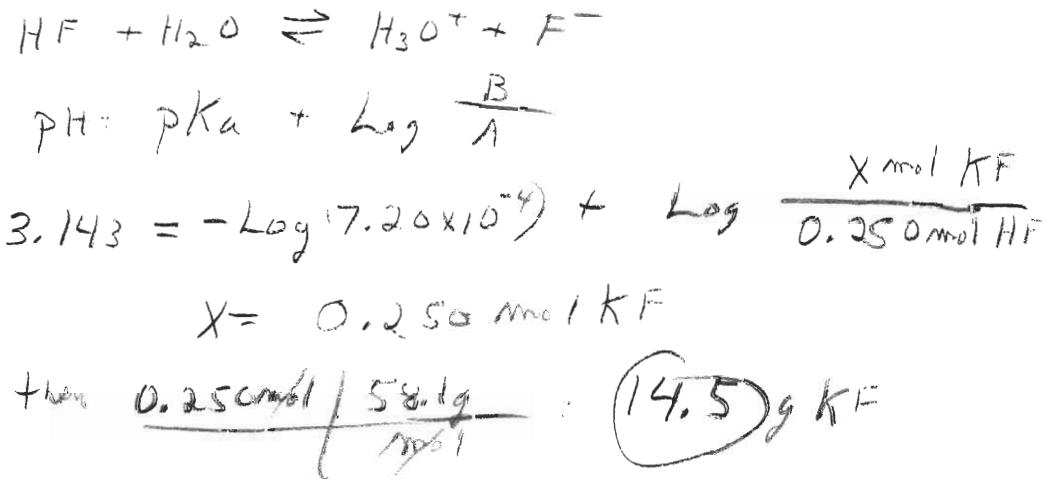 HF + H₂O ⇌ H₃O⁺ + F⁻
pH: pKa + Log B/A
3.143 = -Log(7.20x10⁻⁴) + Log X mol KF / 0.250 mol HF
X= 0.250 mol KF
then 0.250 mol | 58.1g / mol : 14.5 g KF